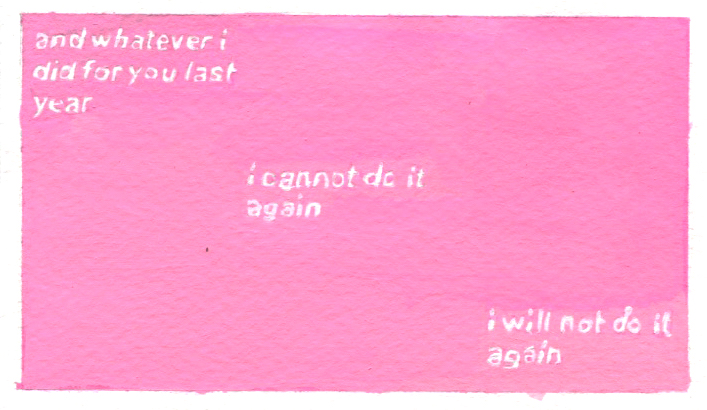 and whatever i
did for you last
year
i cannot do it
again
i will not do it
again